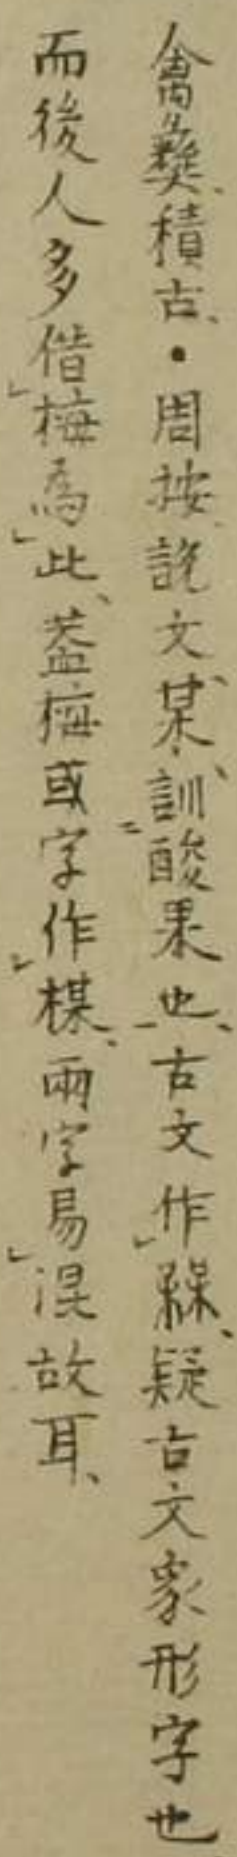 禽彝積古・周按説文某訓酸果也古文作槑疑古文象形字也
而後人多借梅為此蓋梅或字作楳兩字易混故耳